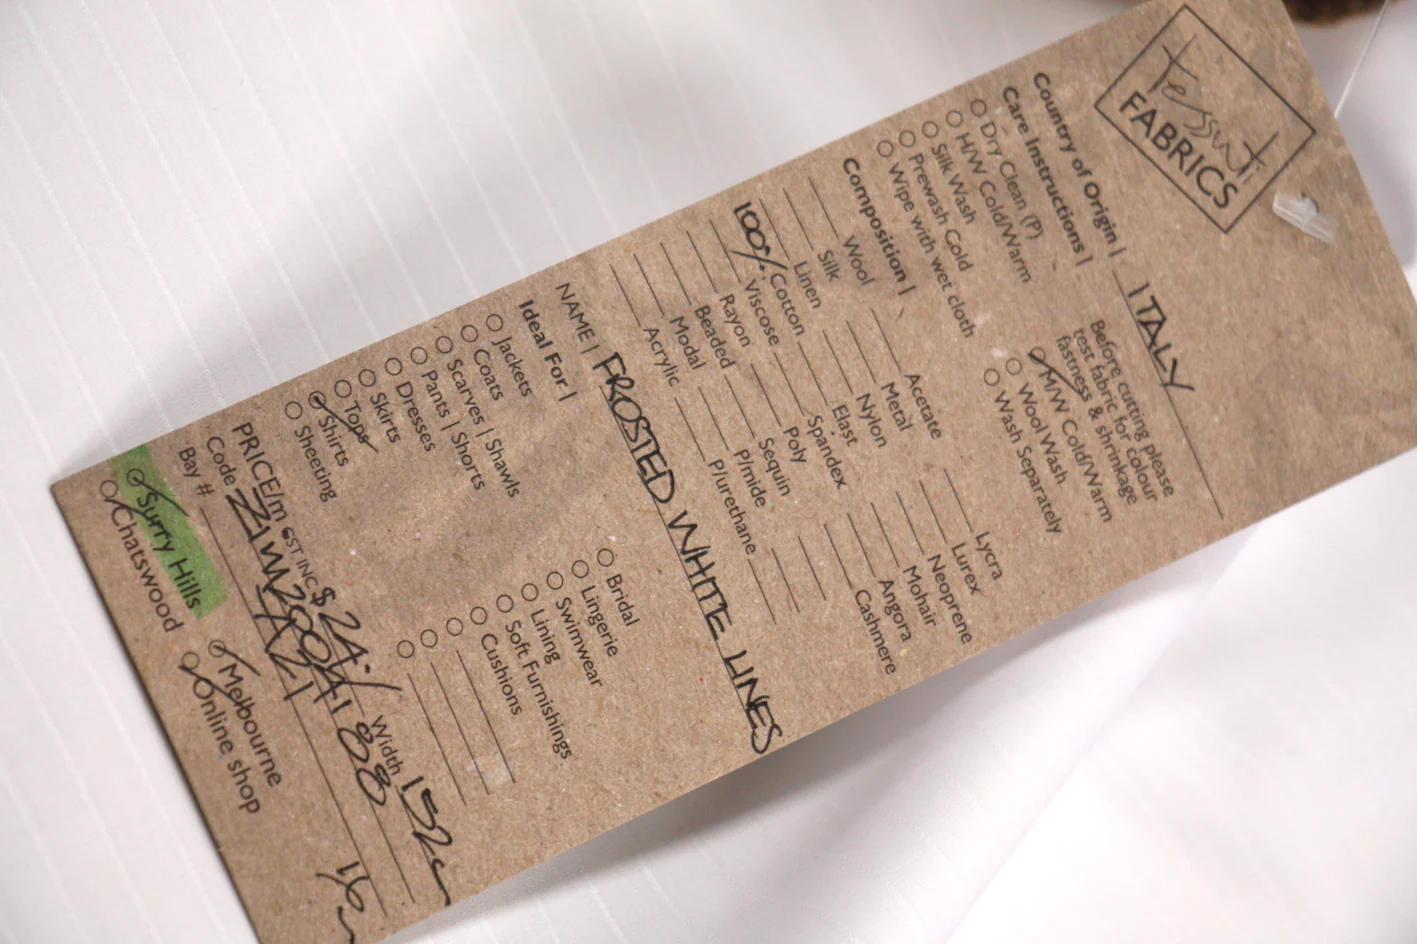 tessuti
FABRICS
Country of Origin | ITALY
Care Instructions |
Dry Clean (P)
H/W Cold/Warm
Silk Wash
Prewash Cold
Wipe with wet cloth
Before cutting please
test fabric for colour
fastness & shrinkage
M/W Cold/Warm
Wool Wash
Wash Separately
Composition |
Wool
Silk
Linen
100% Cotton
Viscose
Rayon
Beaded
Modal
Acrylic
Acetate
Metal
Nylon
Elast
Spandex
Poly
Sequin
P/mide
P/urethane
Lycra
Lurex
Neoprene
Mohair
Angora
Cashmere
NAME | FROSTED WHITE LINES
Ideal For |
Jackets
Coats
Scarves | Shawls
Pants | Shorts
Dresses
Skirts
Tops
Shirts
Sheeting
Bridal
Lingerie
Swimwear
Lining
Soft Furnishings
Cushions
PRICE/m GST INC $ 24.- Width 152cm
Code
Bay # A21
Surry Hills
Chatswood
Melbourne
Online shop